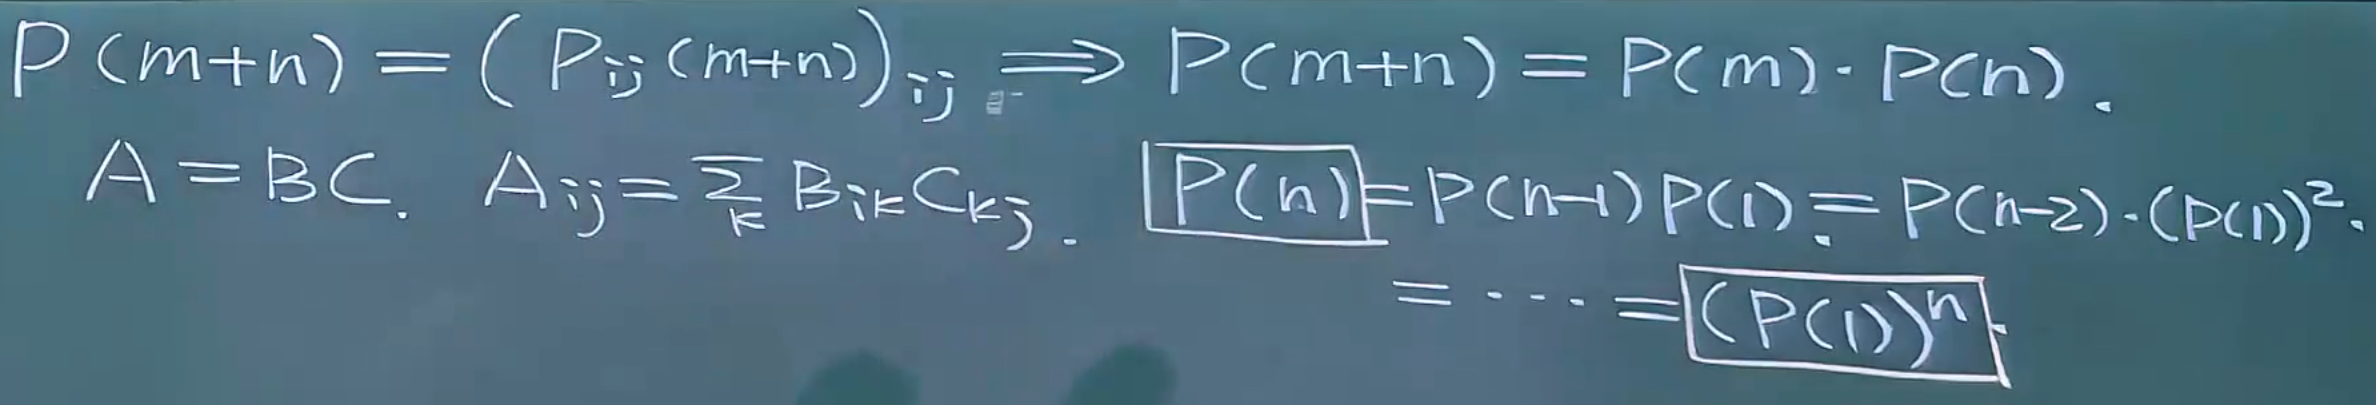 P(m+n) = (P_ij(m+n))_ij ⟹ P(m+n) = P(m)·P(n).
A = BC. A_ij = Σ_k B_ik C_kj. P(n) = P(n-1)P(1). = P(n-2)·(P(1))^2.
= ··· = (P(1))^n.